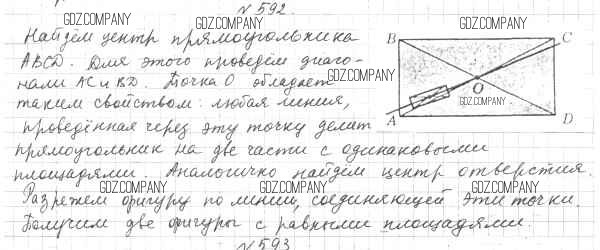 №592
GDZ.COMPANY GDZ.COMPANY GDZ.COMPANY
Найдём центр прямоугольника
ABCD. Для этого проведём диаго-
нали AC и BD. Точка O обладает
таким свойством: любая линия,
проведённая через эту точку делит
прямоугольник на две части с одинаковыми
площадями. Аналогично найдём центр отверстия.
GDZ.COMPANY GDZ.COMPANY GDZ.COMPANY
Разрежем фигуру по линии, соединяющей эти точки.
Получим две фигуры с равными площадями.
№593
B
C
GDZ.COMPANY
O
GDZ.COMPANY
A
D